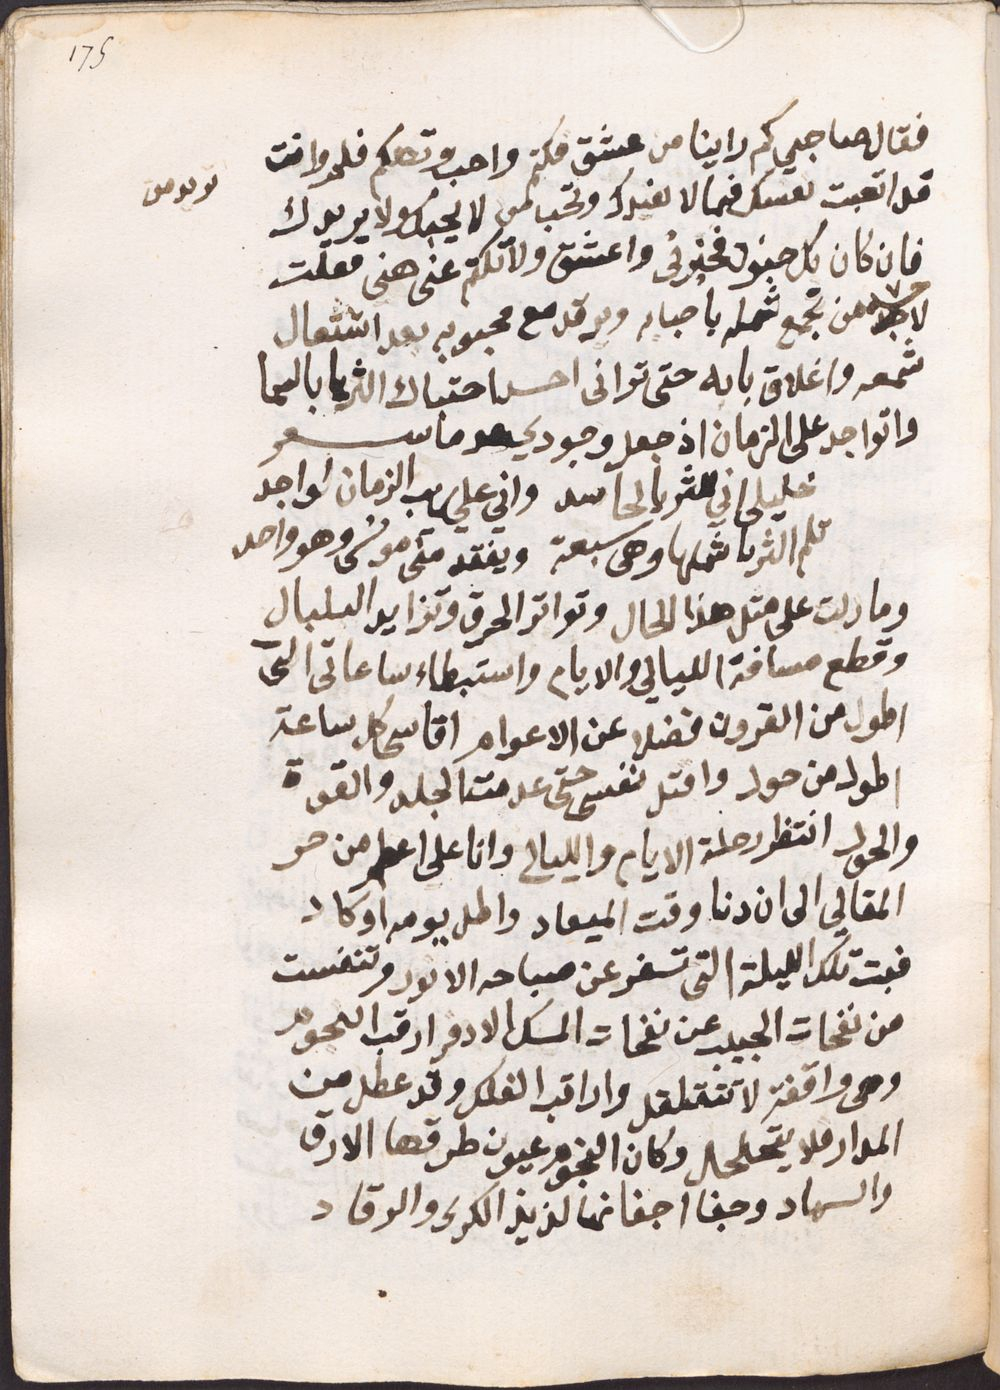 175
فقال صاحبي كم راينا من عشق فكتم واحب وتهكم فلحد وانت
قد اتعبت نفسك فيما لا يفيدك وتحب لمن لا يحبك ولا يريدك
فان كان بك جنون فخبرني واعشق ولا تكتم عني هني فقلت
من تجمع شمله باحبابه ويرقد مع محبوبه بعد اشتعال
شمعه واغلاق بابه حتى تراني احسد احتباك الثريا بالسما
واتواجد على الزمان اذ جعل وجودي عدما شعر
خليلي اني للثريا لحاسد واني على ريب الزمان لواجد
تلم الثريا شملها وهي سبعة ويفقد مني مونسي وهو واحد
وما زلت على مثل هذا الحال وتواتر الحرق وتزايد البلبال
وقطع مسافة الليالي والايام واستبطاء ساعاتي التي
اطول من القرون فضلا عن الاعوام اقاسي كل ساعة
اطول من حول واقتل نفسي حتى عدمت الجلد والقوة
والحول انتظر رحلة الايام والليالي وانا على اعظم من حر
المقالي الى ان دنا وقت الميعاد واطل يومه او كاد
فبت تلك الليلة التي تسفر عن صباحه الانور وتنفست
من نفحات الحبيب عن نفحات المسك الاذفر ارقب النجوم
وهي واقفة لا تتقلقل واراقب الفلك وقد عطل من
المدار فلا يتحلحل وكان النجوم عيون طرقها الارق
والسهاد وجفا اجفانها لذيذ الكرى والرقاد